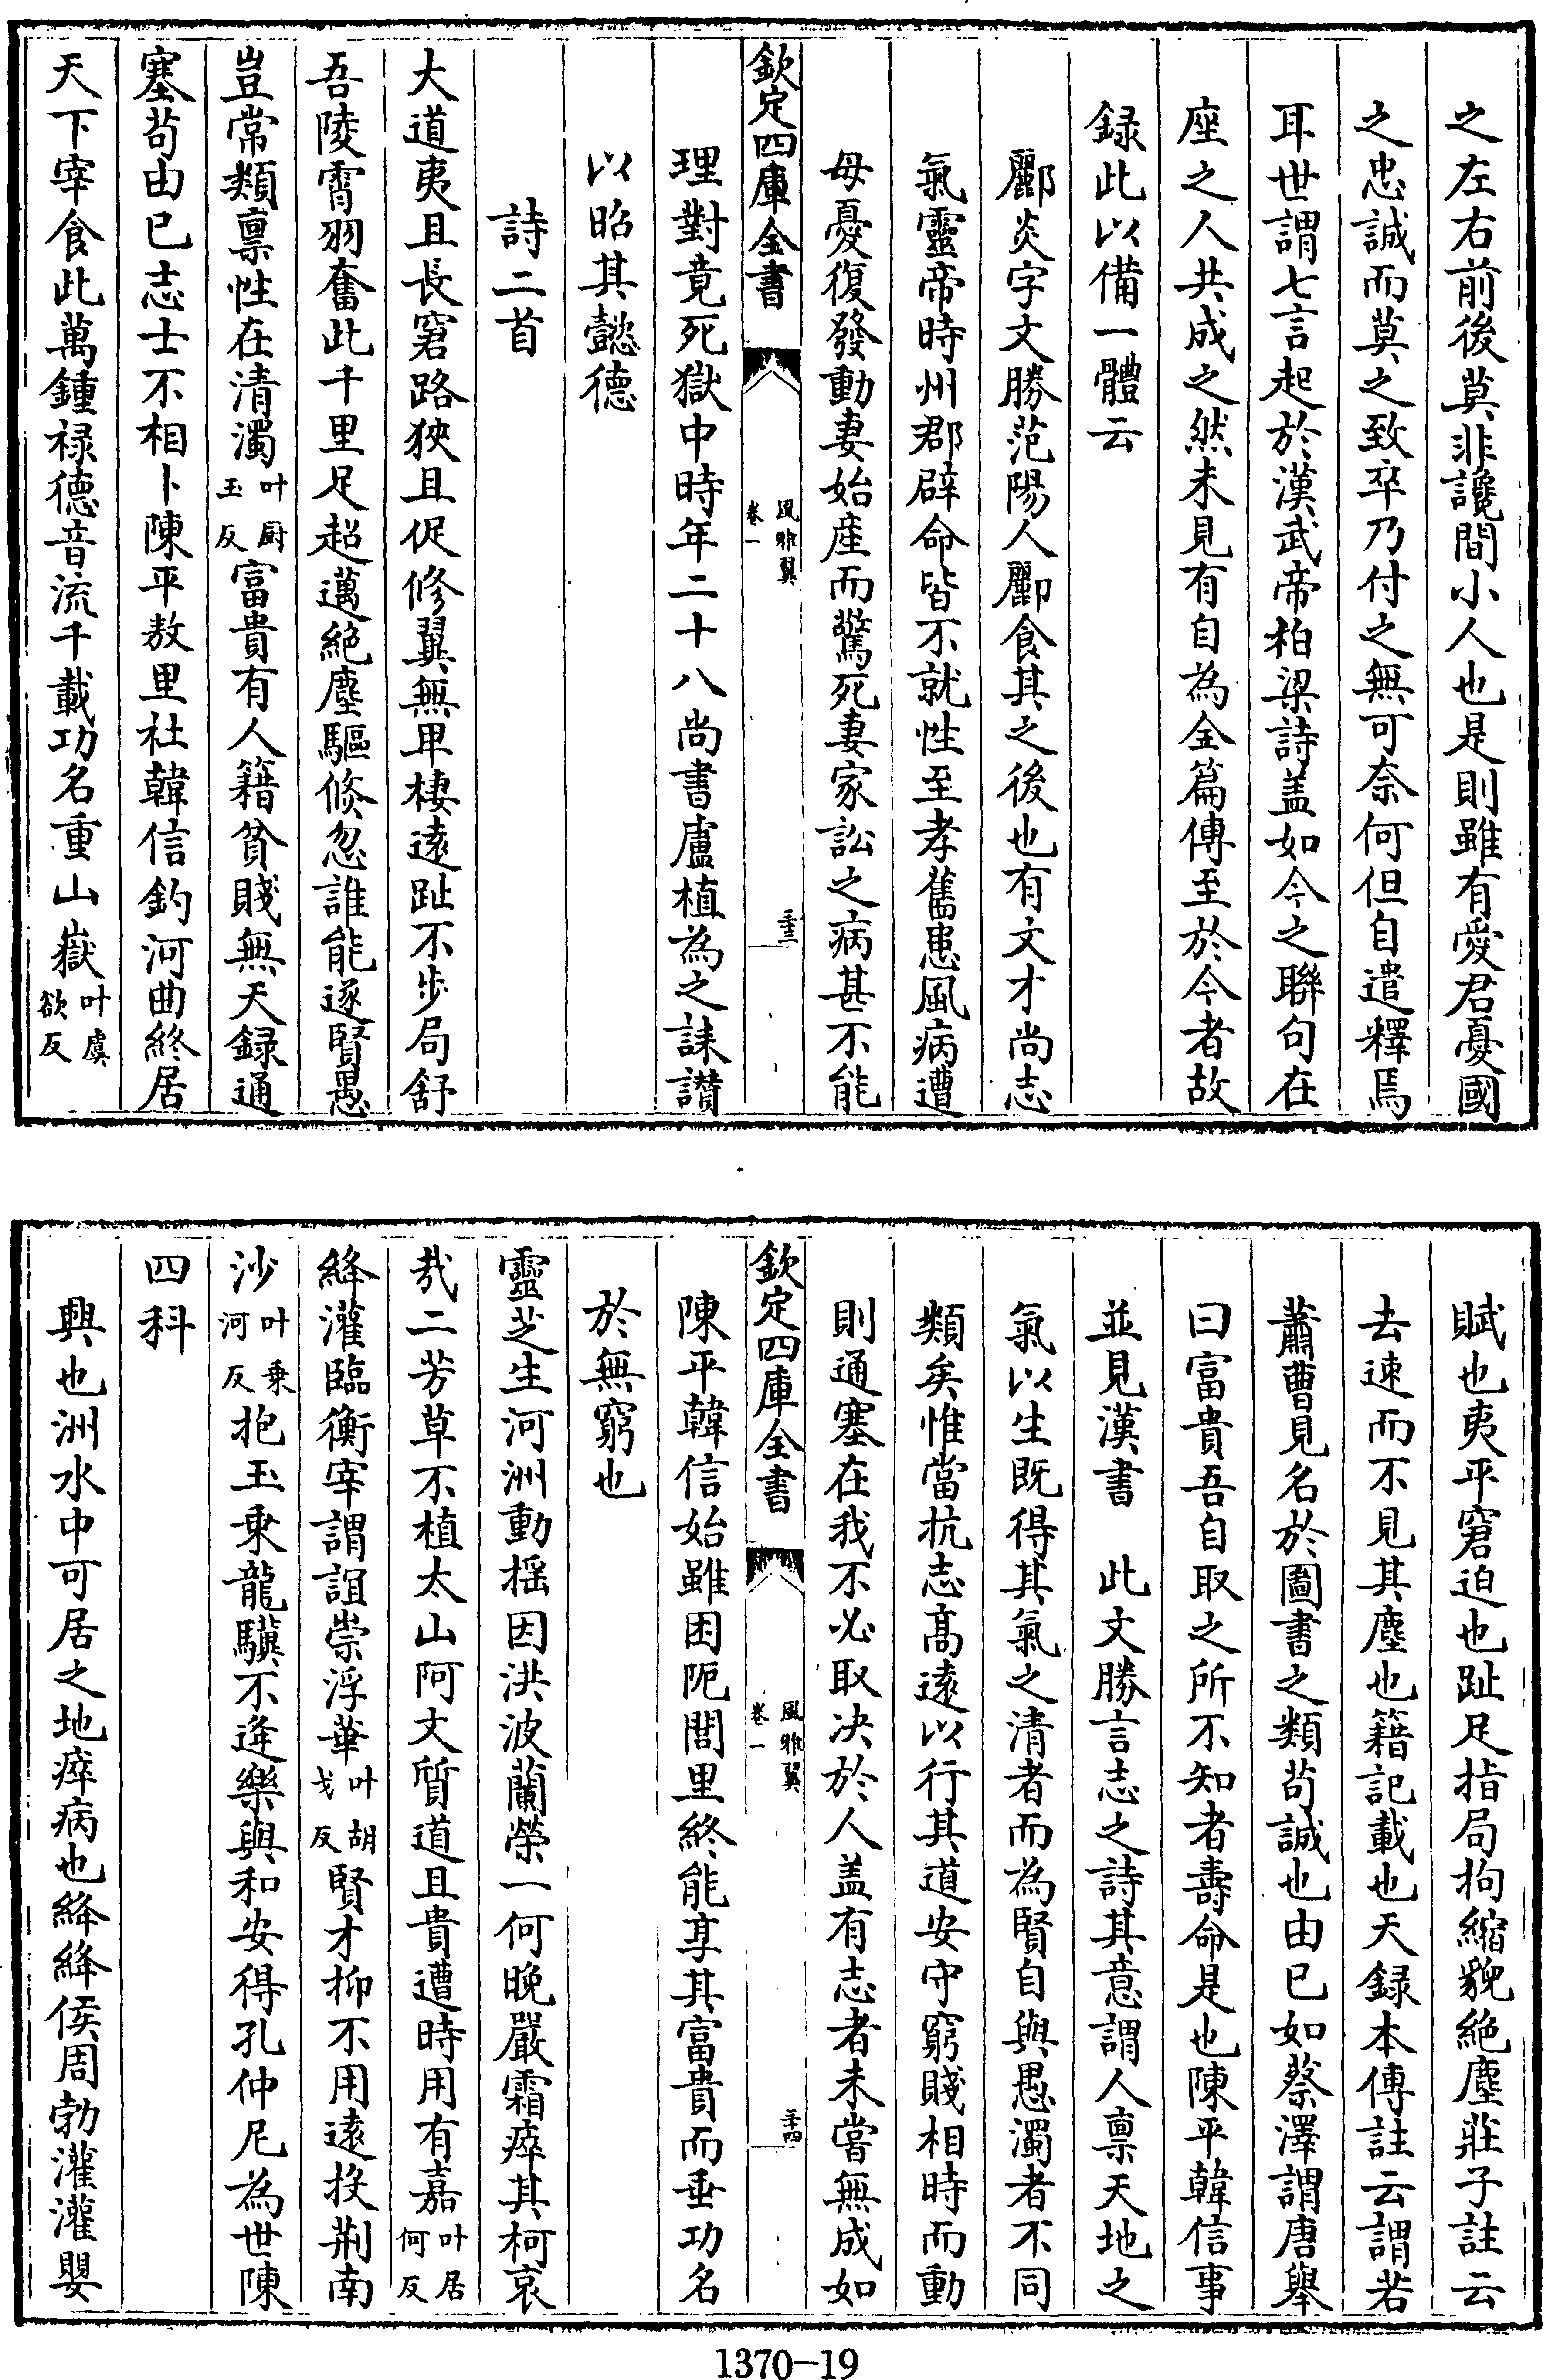 之左右前後莫非讒間小人也是則雖有愛君憂國
之忠誠而莫之致卒乃付之無可奈何但自遣釋焉
耳世謂七言起於漢武帝柏梁詩盖如今之聯句在
座之人共成之然未見有自為全篇傳至於今者故
録此以備一體云
酈炎字文勝范陽人酈食其之後也有文才尚志
氣靈帝時州郡辟命皆不就性至孝舊患風病遭
母憂復發動妻始産而驚死妻家訟之病甚不能
欽定四庫全書
風雅翼
卷一
三十三
理對竟死獄中時年二十八尚書盧植為之誄讃
以昭其懿德
詩二首
大道夷且長窘路狹且促修翼無卑棲逺趾不歩局舒
吾陵霄羽奮此千里足超邁絶塵驅倐忽誰能逐賢愚
豈常類禀性在清濁叶厨玉反富貴有人籍貧賤無天録通
塞茍由已志士不相卜陳平敖里社韓信釣河曲終居
天下宰食此萬鍾禄德音流千載功名重山嶽叶虞欲反
賦也夷平窘迫也趾足指局拘縮貌絶塵莊子註云
去速而不見其塵也籍記載也天録本傳註云謂若
蕭曹見名於圖書之類茍誠也由已如蔡澤謂唐舉
曰富貴吾自取之所不知者壽命是也陳平韓信事
並見漢書　此文勝言志之詩其意謂人禀天地之
氣以生既得其氣之清者而為賢自與愚濁者不同
類矣惟當抗志髙逺以行其道安守窮賤相時而動
則通塞在我不必取决於人盖有志者未嘗無成如
欽定四庫全書
風雅翼
卷一
三十四
陳平韓信始雖困阨閭里終能享其富貴而垂功名
於無窮也
靈芝生河洲動揺因洪波蘭榮一何晚嚴霜瘁其柯哀
哉二芳草不植太山阿文質道且貴遭時用有嘉叶居何反
絳灌臨衡宰謂誼崇浮華叶胡戈反賢才抑不用逺投荆南
沙叶桑河反抱玉乗龍驥不逢樂與和安得孔仲尼為世陳
四科
興也洲水中可居之地瘁病也絳絳侯周勃灌灌嬰
1370-19